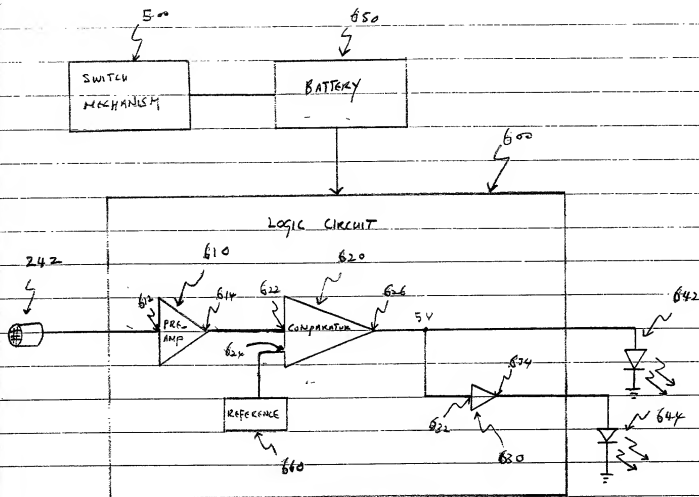 500
650
SWITCH
MECHANISM
BATTERY
600
LOGIC CIRCUIT
242
610
620
612
614
622
626
642
PRE-
AMP
COMPARATOR
5V
624
634
REFERENCE
632
630
644
660